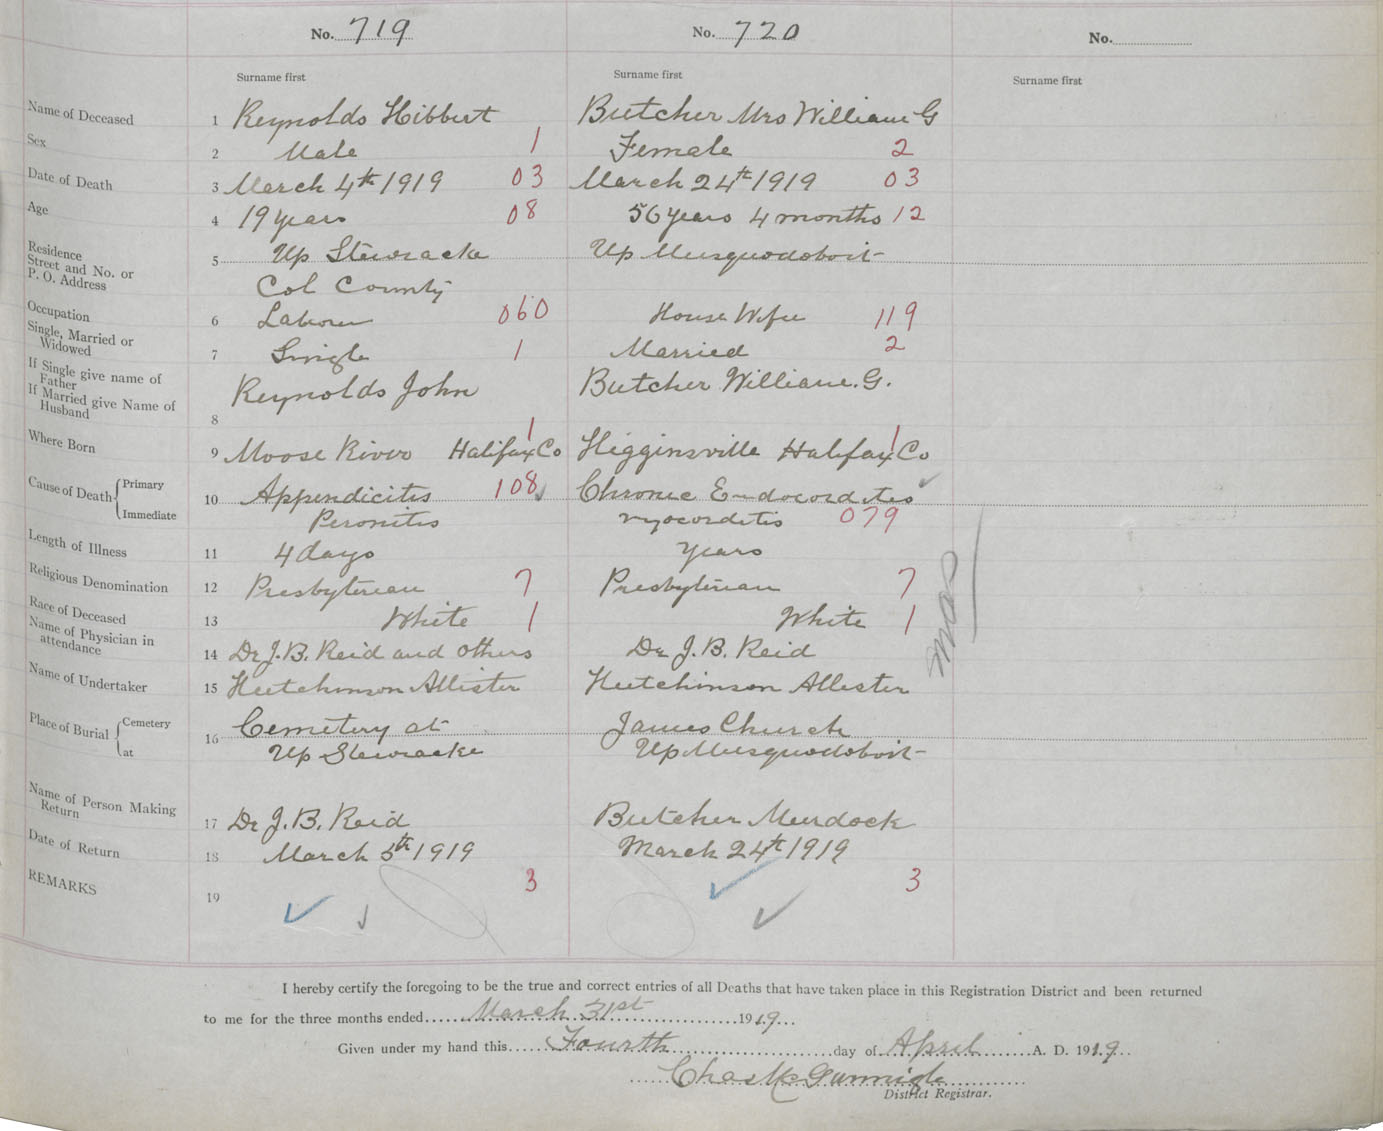 No. 719
No. 720
No.
Surname first
Surname first
Surname first
Name of Deceased 1 Reynolds Hibbert Butcher Mrs William G
Sex 2 Male 1 Female 2
Date of Death 3 March 4th 1919 03 March 24th 1919 03
Age 4 19 years 08 56 years 4 months 12
Residence
Street and No. or
P. O. Address
5 Up Stewiacke Up Musquodoboit
Col County
Occupation 6 Laborer 060 House Wife 119
Single, Married or
Widowed
7 Single 1 Married 2
If Single give name of
Father
If Married give Name of
Husband
8 Reynolds John Butcher William. G.
Where Born 9 Moose River Halifax Co 1 Higginsville Halifax Co 1
Cause of Death { Primary
Immediate
10 Appendicitis 108 Chronic Endocorditis
Peronitis myocorditis 079
Length of Illness 11 4 days years
Religious Denomination 12 Presbyterian 7 Presbyterian 7
Race of Deceased 13 White 1 White 1
Name of Physician in
attendance
14 Dr J. B. Reid and others Dr J. B. Reid
Name of Undertaker 15 Hutchinson Allister Hutchinson Allister
Place of Burial { Cemetery
at
16 Cemetery at James Church
Up Stewiacke Up Musquodoboit
Name of Person Making
Return
17 Dr J. B. Reid Butcher Murdock
Date of Return 18 March 5th 1919 March 24th 1919
REMARKS 19 3 3
I hereby certify the foregoing to be the true and correct entries of all Deaths that have taken place in this Registration District and been returned
to me for the three months ended March 31st 1919
Given under my hand this Fourth day of April A. D. 1919
Chas McGunnigle
District Registrar.